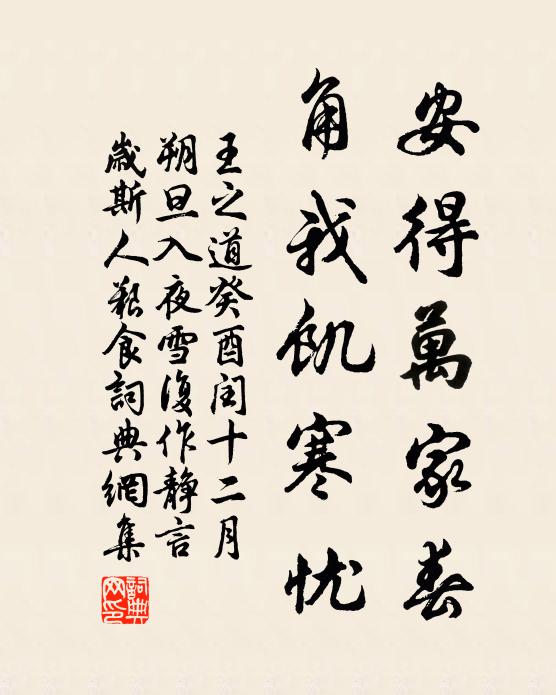 安得萬家春
角我飢寒忧
王之道癸酉闰十二月
朔旦入夜雪復作靜言
歲斯人艱食詞典網集